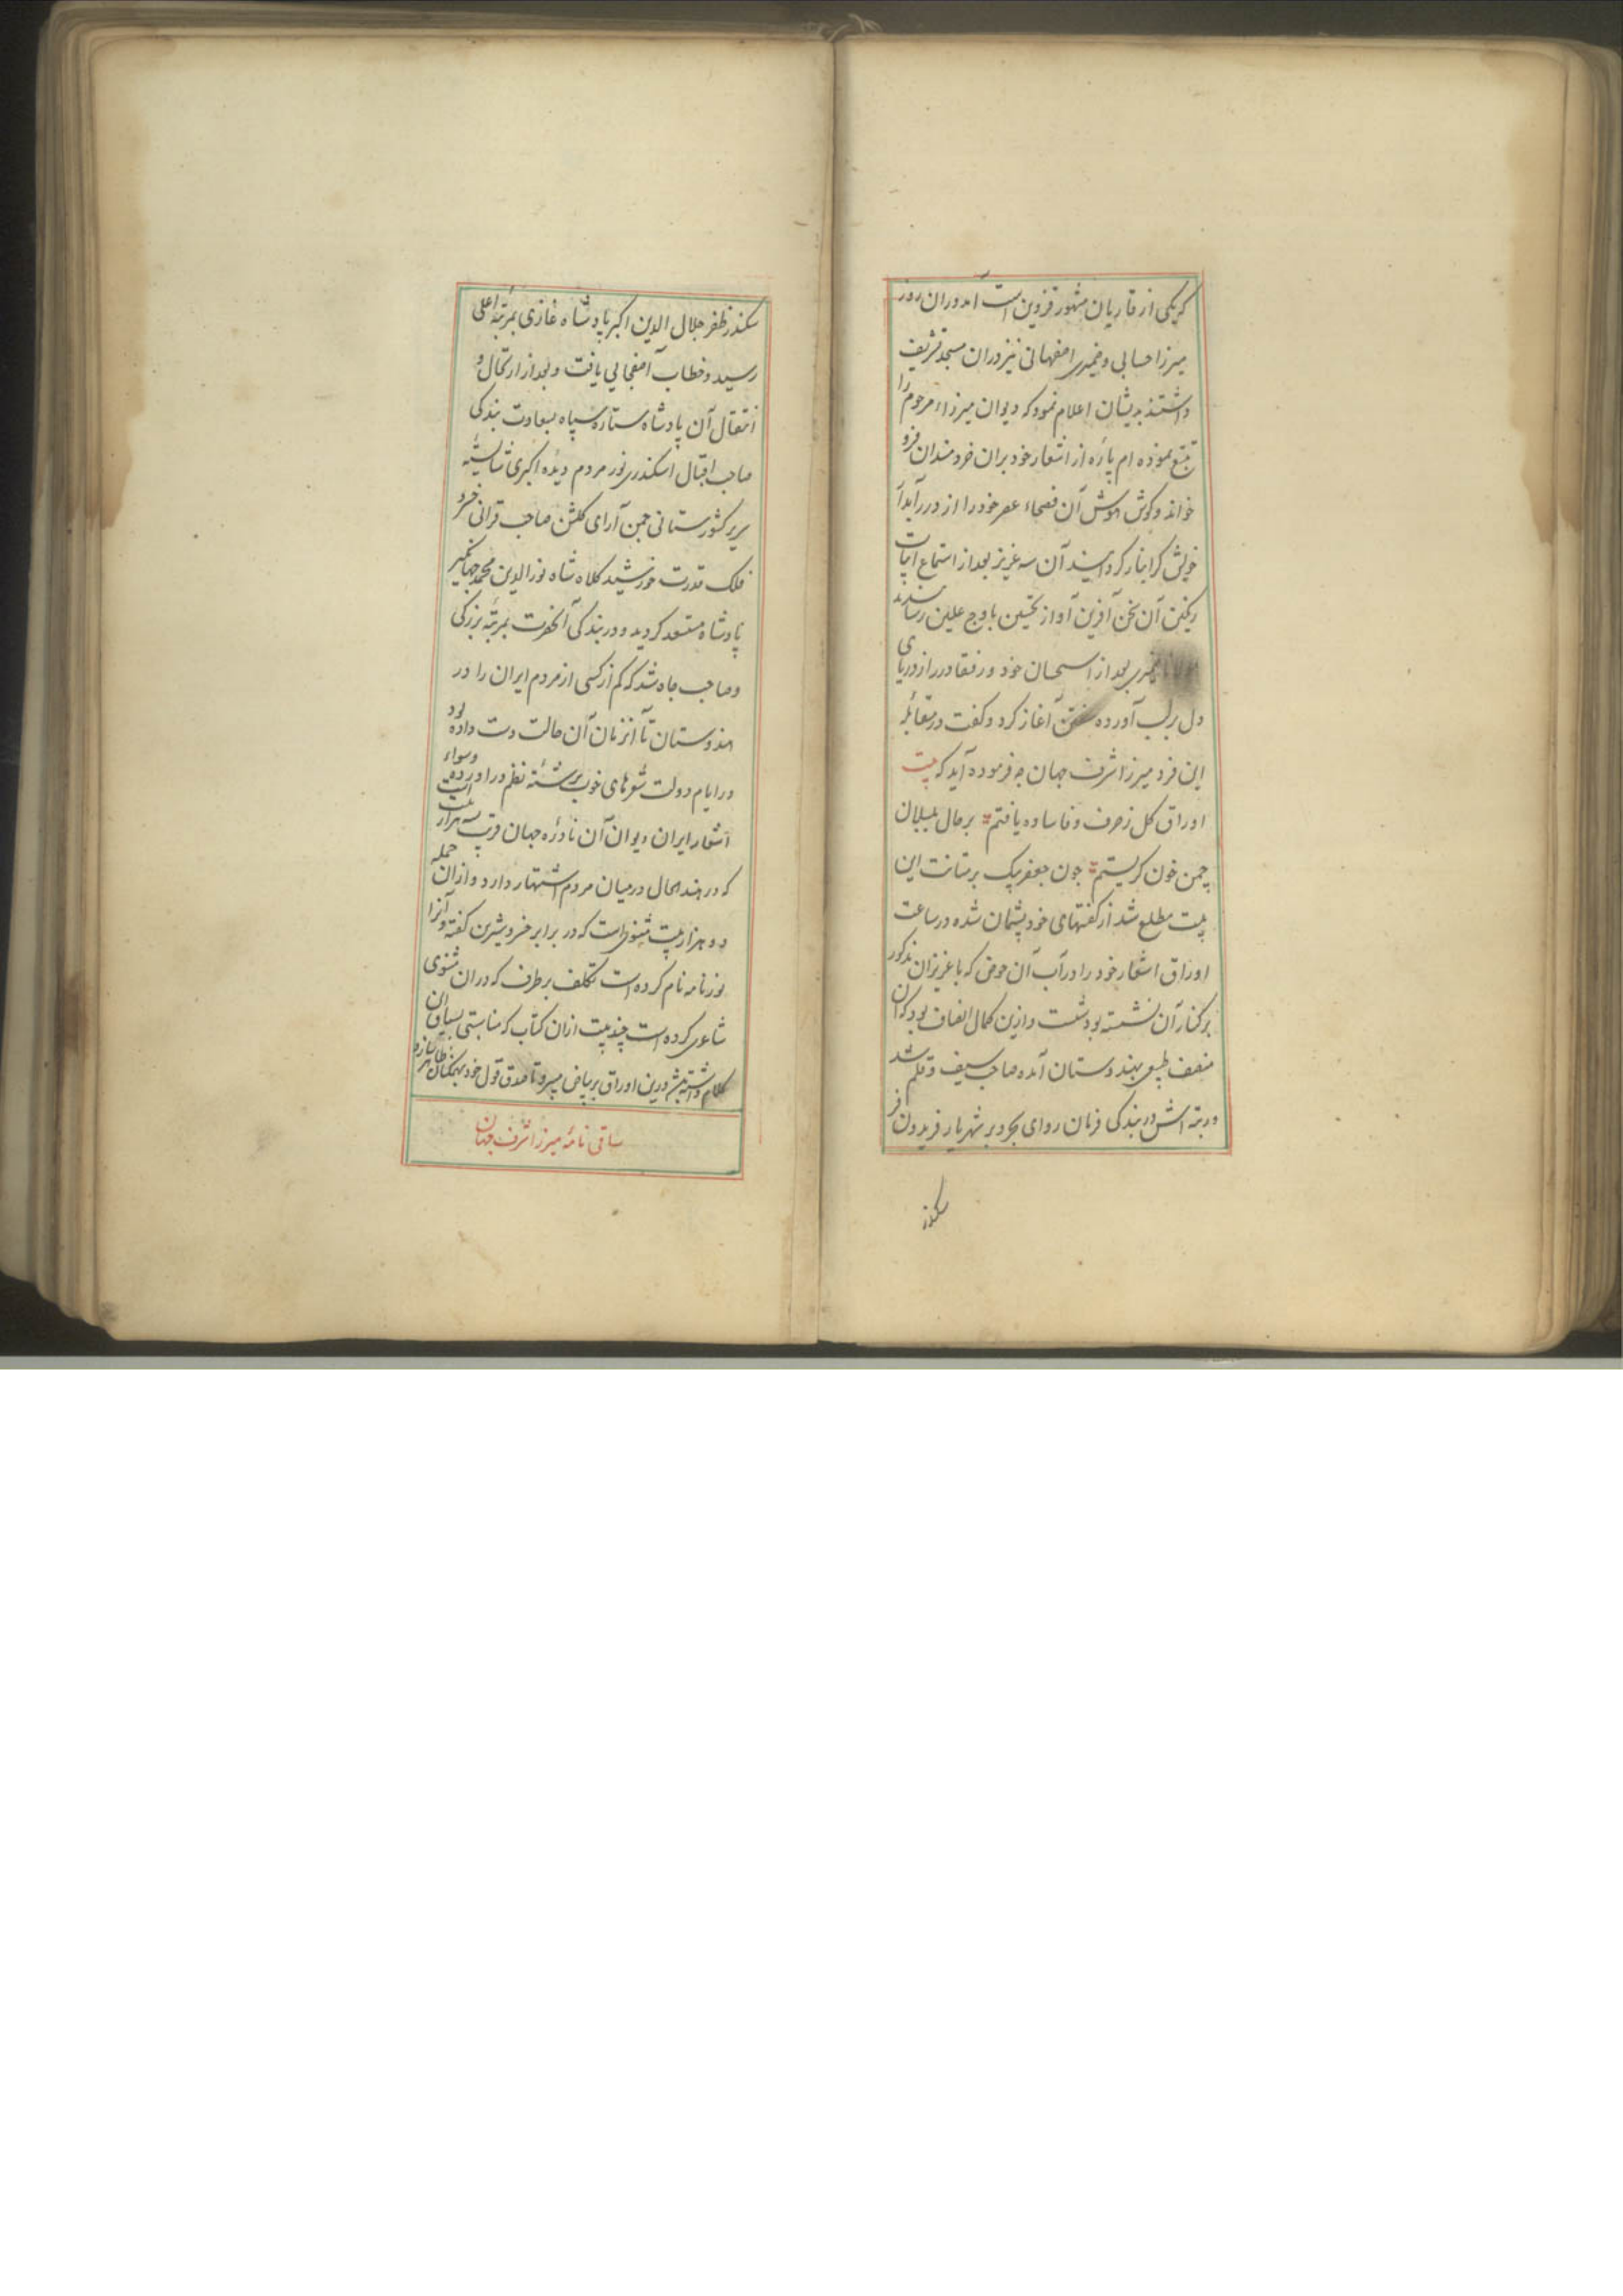 که یکی از قاریان مشهور قزوین است آمد دران روز
میرزا حسابی و ضمیری اصفهانی نیز دران مسجد تشریف
داشتند بدیشان اعلام نمود که دیوان میرزاء مرحوم را
تتبع نموده ام پاره از اشعار خود بران خردمندان فرو
خواند و گوش هوش آن فصحاء عصر خود را از درر آبدار
خویش گرانبار گردانید آن سه عزیز بعد از استماع ابیات
رنگین آن سخن آفرین آواز تحسین باوج علیین رسانیدند
مولانا ضمیری بعد از استحسان خود و رفقا درر از دریای
دل بر لب آورده سخن آغاز کرد و گفت در مقابله
این فرد میرزا شرف جهان چه فرموده آید که بیت
اوراق گل ز حرف وفا ساده یافتم بر حال بلبلان
چمن خون گریستم چون جعفر بیک بر متانت این
بیت مطلع شد از گفتهای خود پشیمان شده در ساعت
اوراق اشعار خود را در آب آن حوض که با عزیزان مذکور
بر کنار آن نشسته بود شست و ازین کمال انصاف بود که آن
منصف طبع بهندوستان آمده صاحب سیف و قلم شد
و رتبه اش در بندگی فرمان روای بحر و بر شهریار فریدون فر
سکندر
سکندر ظفر جلال الدین اکبر پادشاه غازی بمرتبه اعلی
رسید و خطاب آصفخانی یافت و بعد از ارتحال و
انتقال آن پادشاه ستاره سپاه بسعادت بندگی
صاحب اقبال اسکندری نور مردم دیده اکبری شایسته
سریر کشورستانی چمن آرای گلشن صاحب قرانی خسرو
فلک قدرت خورشید کلاه شاه نورالدین محمد جهانگیر
پادشاه مستسعد گردید و در بندگی آنحضرت بمرتبه بزرگی
و صاحب جاه شد که کم از کسی از مردم ایران را در
هندوستان تا آنزمان آن حالت دست داده بود
در ایام دولت شعرهای خوب برشته نظم در آورده و سواء
اشعار ایران دیوان آن نادره جهان قریب سه هزار بیت است
که در هند الحال درمیان مردم اشتهار دارد و ازان جمله
دو هزار بیت مثنوی است که در برابر خسرو شیرین گفته و آنرا
نورنامه نام کرده است تکلف برطرف که دران مثنوی
شاعری کرده است چند بیت ازان کتاب که مناسبتی بسیاق این
کلام داشته باشد درین اوراق بر بیاض میبرد تا صدق قول خود بر همگنان ظاهر سازد
ساقی نامه میرزا شرف جهان